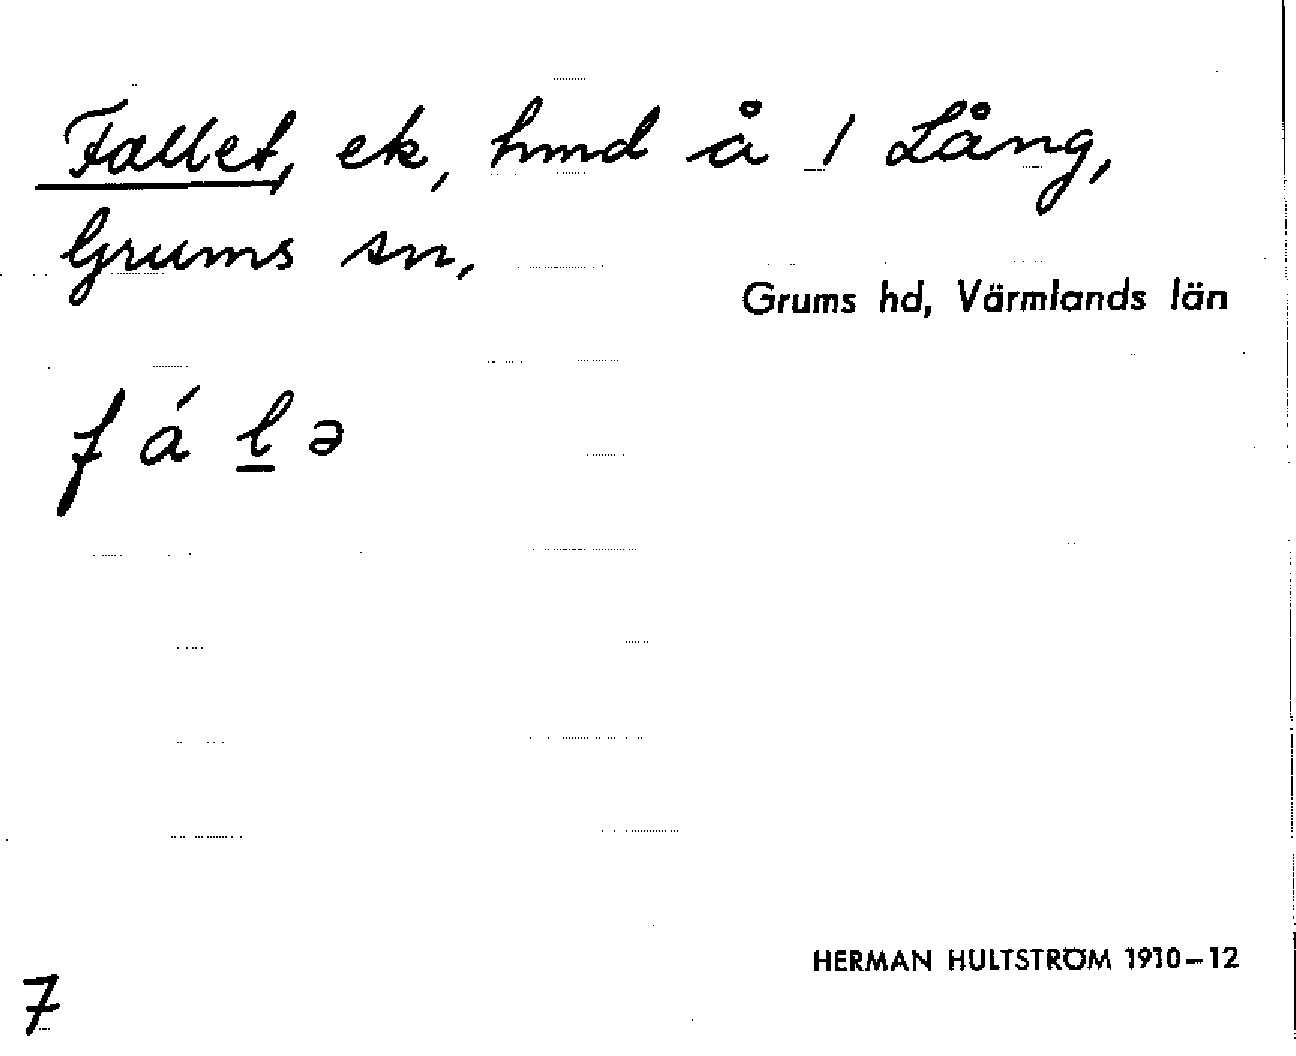 Fallet, ek, hmd å 1 Lång,
Grums sn,
Grums hd, Värmlands län
fá l̲ ə
HERMAN HULTSTRÖM 1910–12
7